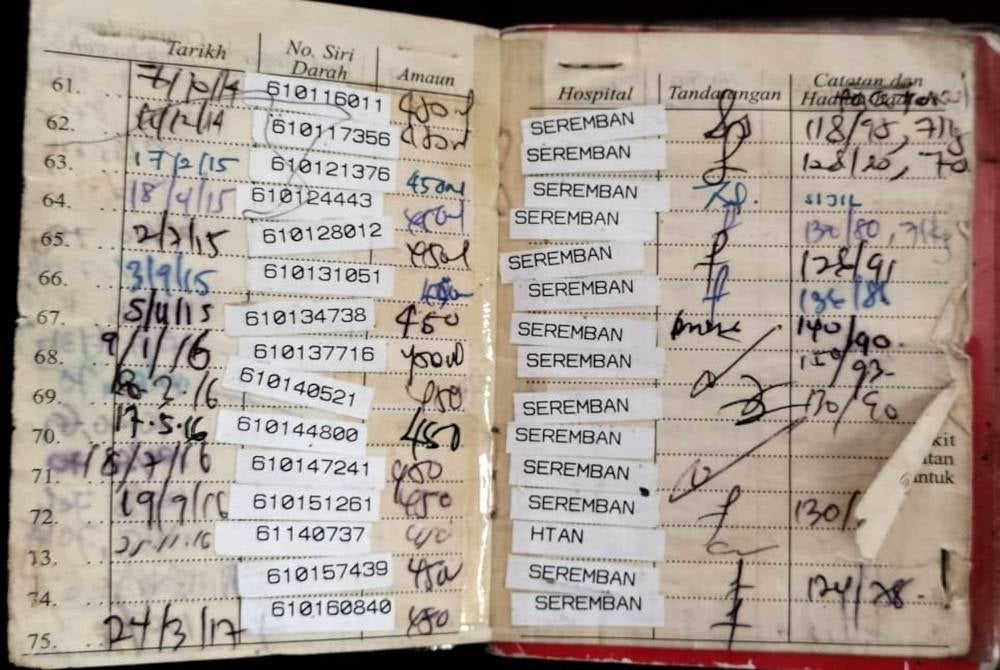 Tarikh No. Siri Darah Amaun
61. 7/10/14 610116011 450ml
62. /12/14 610117356 450ml
63. 17/2/15 610121376 450ml
64. 18/4/15 610124443 450ml
65. 2/7/15 610128012 450ml
66. 3/9/15 610131051 450
67. 5/11/15 610134738 450
68. 9/1/16 610137716 450ml
69. 3.16 610140521 450
70. 17.5.16 610144800 450
71. 18/7/16 610147241 450
72. 19/9/16 610151261 450
73. 61140737
74. 610157439 450
75. 24/3/17 610160840 450
Hospital Tandatangan Catatan dan
SEREMBAN 118/98,
SEREMBAN 128/80, 70
SEREMBAN
SEREMBAN 130/80,
SEREMBAN 128/91
SEREMBAN
SEREMBAN 140/90
SEREMBAN 93
SEREMBAN 130/90
SEREMBAN
SEREMBAN
SEREMBAN 130/
HTAN
SEREMBAN 124/78
SEREMBAN
kit
tan
untuk